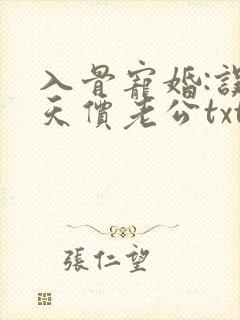 入骨寵婚:誤
天價老公txt
張仁望